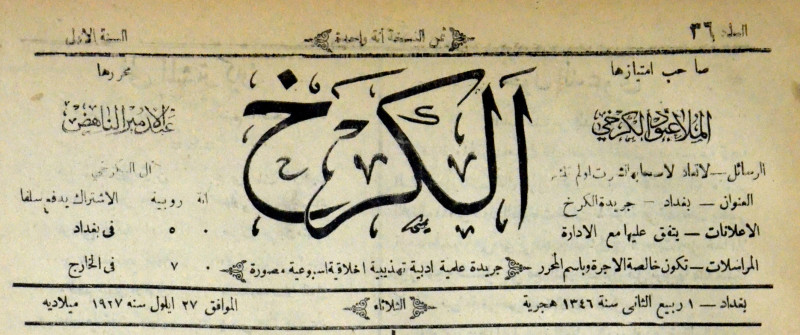 العدد ٣٦
ثمن النسخة آنة واحدة
السنة الاولى
صاحب امتيازها
الملا عبود الكرخي
الكرخ
محررها
عبد الامير الناهض
الرسائل — لاتعاد لاصحابها نشرت اولم تنشر
العنوان — بغداد — جريدة الكرخ
الاعلانات — يتفق عليها مع الادارة
المراسلات — تكون خالصة الاجرة وباسم المحرر
جريدة علمية ادبية تهذيبية اخلاقية اسبوعية مصورة
آنة روبية الاشتراك يدفع سلفا
٠ ٥ فى بغداد
٠ ٧ فى الخارج
بغداد — ١ ربيع الثانى سنة ١٣٤٦ هجرية
الثلاثاء
الموافق ٢٧ ايلول سنه ١٩٢٧ ميلاديه